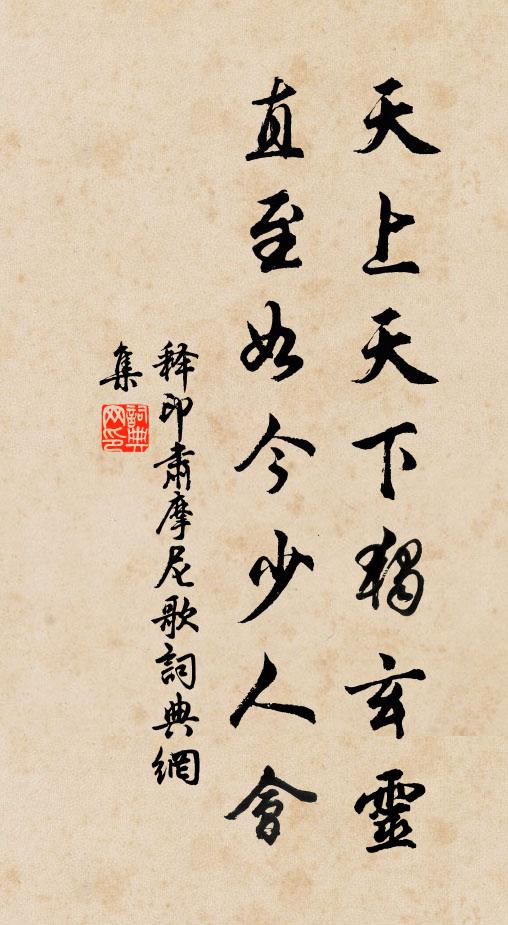 天上天下獨玄靈
直至如今少人會
釋印肅摩尼歌詞典網
集
詞典網印